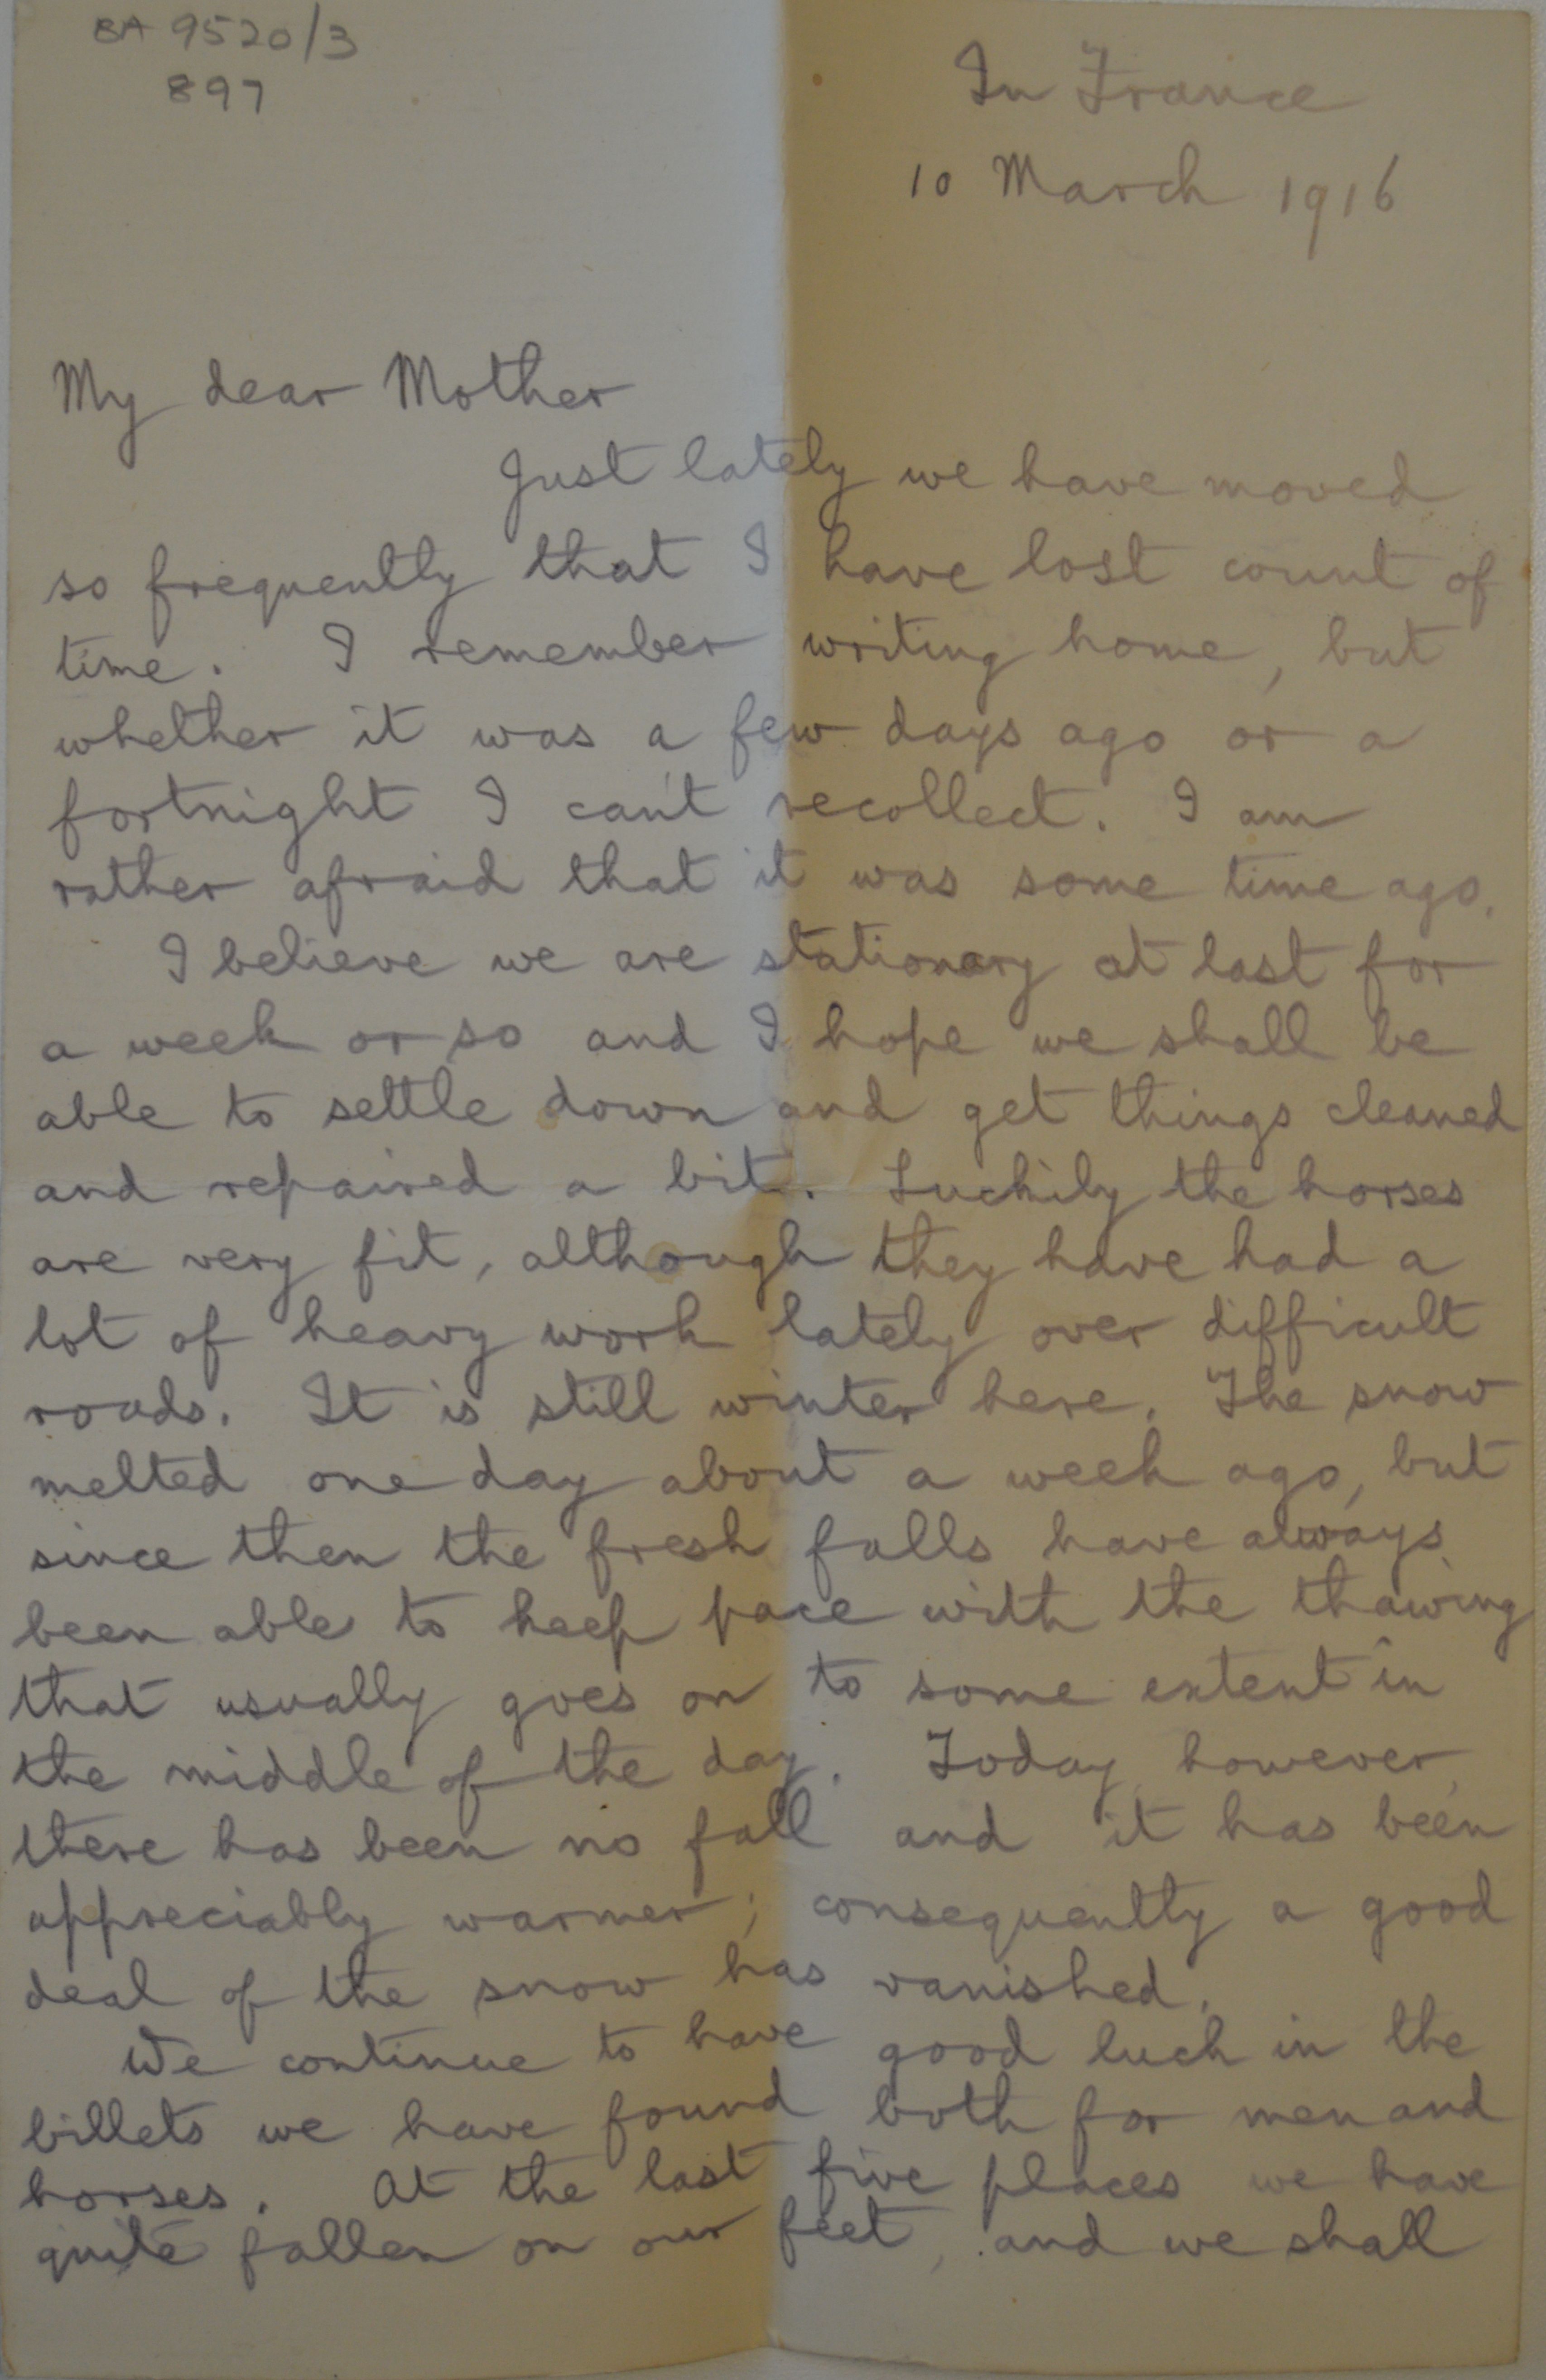 BA 9520/3
897
In France
10 March 1916
My dear Mother
Just lately we have moved
so frequently that I have lost count of
time. I remember writing home, but
whether it was a few days ago or a
fortnight I can't recollect. I am
rather afraid that it was some time ago.
I believe we are stationary at last for
a week or so and I hope we shall be
able to settle down and get things cleaned
and repaired a bit. Luckily the horses
are very fit, although they have had a
lot of heavy work lately over difficult
roads. It is still winter here. The snow
melted one day about a week ago, but
since then the fresh falls have always
been able to keep pace with the thawing
that usually goes on to some extent in
the middle of the day. Today, however,
there has been no fall and it has been
appreciably warmer; consequently a good
deal of the snow has vanished.
We continue to have good luck in the
billets we have found both for men and
horses. At the last five places we have
quite fallen on our feet, and we shall